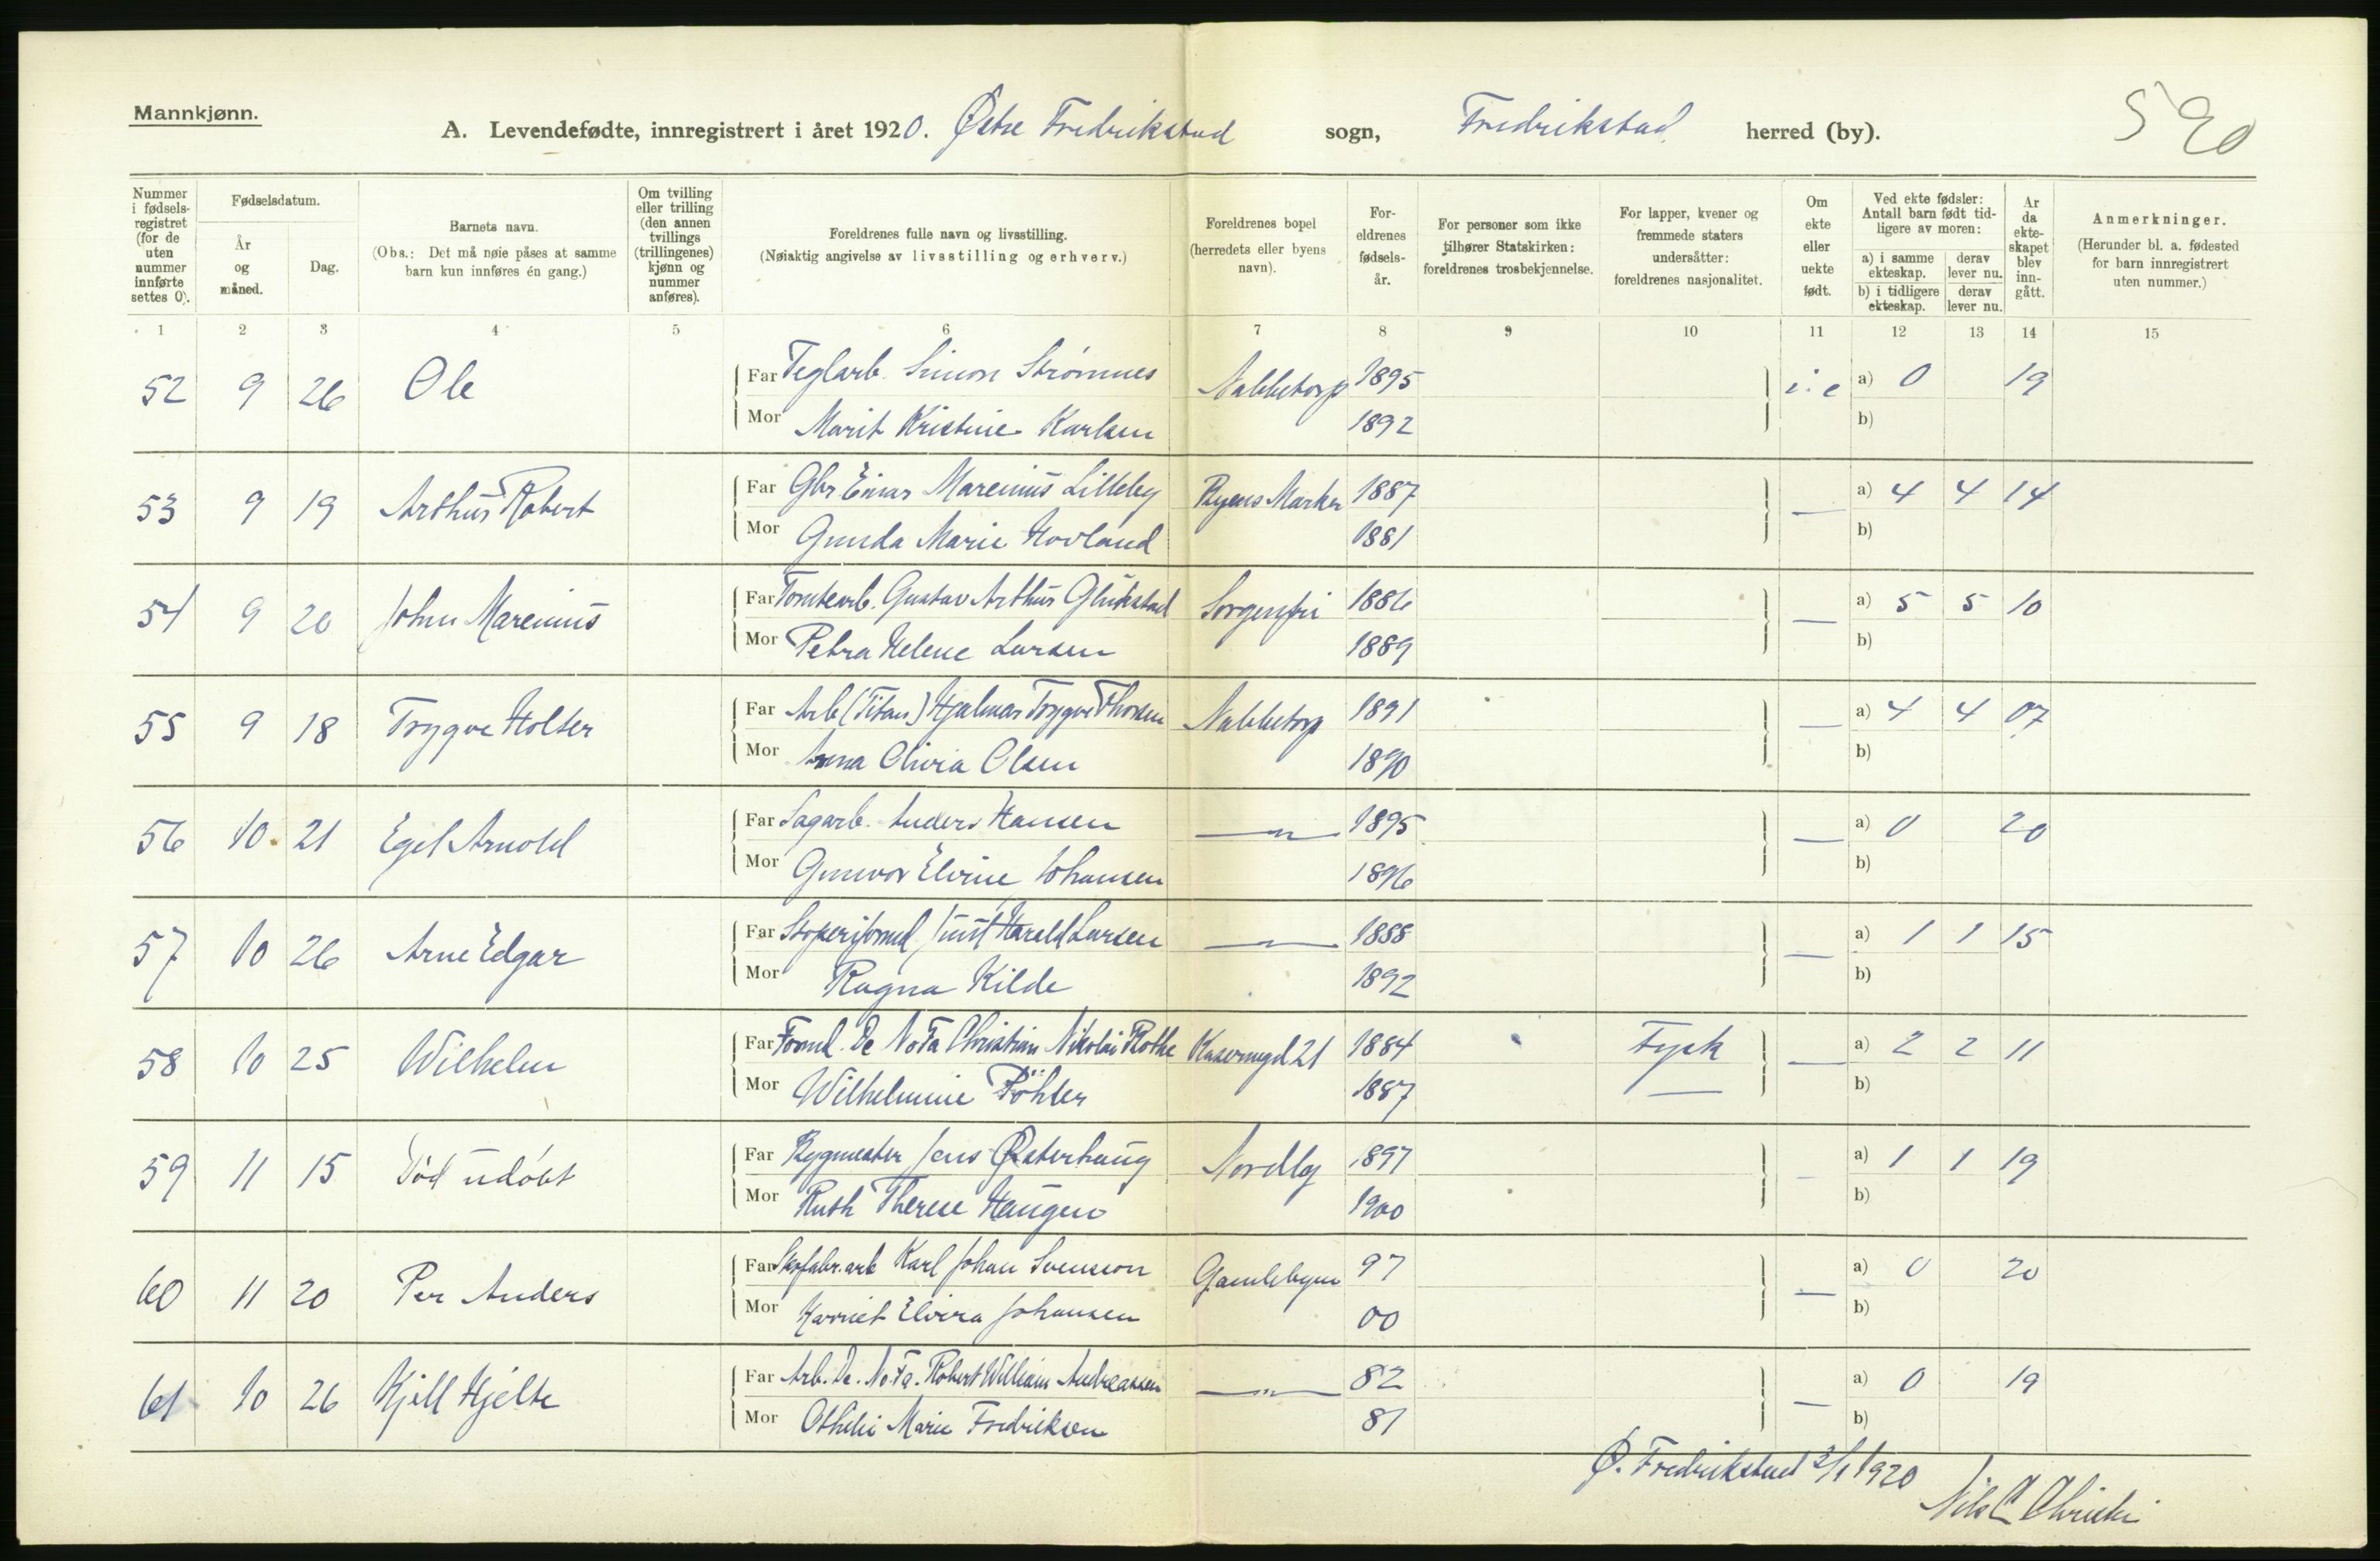 Mannkjønn.
A. Levendefødte, innregistrert i året 1920. Østre Fredrikstad sogn, Fredrikstad herred (by). 590
Nummer i fødselsregistret (for de uten nummer innførte settes 0).
Fødselsdatum.
År og måned.
Dag.
Barnets navn.
(Obs.: Det må nøie påses at samme barn kun innføres én gang.)
Om tvilling eller trilling (den annen tvillings (trillingenes) kjønn og nummer anføres).
Foreldrenes fulle navn og livsstilling.
(Nøiaktig angivelse av livsstilling og erhverv.)
Foreldrenes bopel (herredets eller byens navn).
Foreldrenes fødselsår.
For personer som ikke tilhører Statskirken: foreldrenes trosbekjennelse.
For lapper, kvener og fremmede staters undersåtter: foreldrenes nasjonalitet.
Om ekte eller uekte født.
Ved ekte fødsler: Antall barn født tidligere av moren:
a) i samme ekteskap. derav lever nu.
b) i tidligere ekteskap. derav lever nu.
År da ekteskapet blev inngått.
Anmerkninger.
(Herunder bl. a. fødested for barn innregistrert uten nummer.)
1 2 3 4 5 6 7 8 9 10 11 12 13 14 15
52 9 26 Ole Far Teglarb. Simon Strømnes Nabbetorp 1895 i. e a) 0 19
Mor Marit Kristine Karlsen 1892 b)
53 9 19 Arthur Robert Far Gbr Einar Marenius Lilleby Byens Marker 1887 — a) 4 4 14
Mor Gunda Marie Hovland 1881 b)
54 9 20 John Marenius Far Tomtearb. Gustav Arthur Glükstad Sorgenfri 1886 — a) 5 5 10
Mor Petra Helene Larsen 1889 b)
55 9 18 Trygve Holter Far Arb (Titan) Hjalmar Trygve Thorsen Nabbetorp 1891 — a) 4 4 07
Mor Anna Olivia Olsen 1890 b)
56 10. 21 Egil Arnold Far Sagarb. Anders Hansen —"— 1895 — a) 0 20
Mor Gunvor Elvine Johansen 1896 b)
57 10 26 Arne Edgar Far Harald Larsen —"— 1888 — a) 1 1 15
Mor Ragna Kilde 1892 b)
58 10 25 Wilhelm Far Formd. De NoFa Christian Nikolai Rothe Kasernegd 21 1884 Tysk — a) 2 2 11
Mor Wilhelmine 1887 — b)
59 11 15 Død udøbt Far Bygmester Jens Østerhaug Nordby 1897 — a) 1 1 19
Mor Ruth Therese Haugen 1900 b)
60 11 20 Per Anders Far Skofabr.arb Karl Johan Svensson Gamlebyen 97 — a) 0 20
Mor Harriet Elvira Johansen 00 b)
61 10 26 Kjell Hjelte Far Arb. De. No. Fa. Robert William Andreassen —"— 82 — a) 0 19
Mor Othilie Marie Fredriksen 81 b)
Ø. Fredrikstad 3/1 1920
Nils C Christie